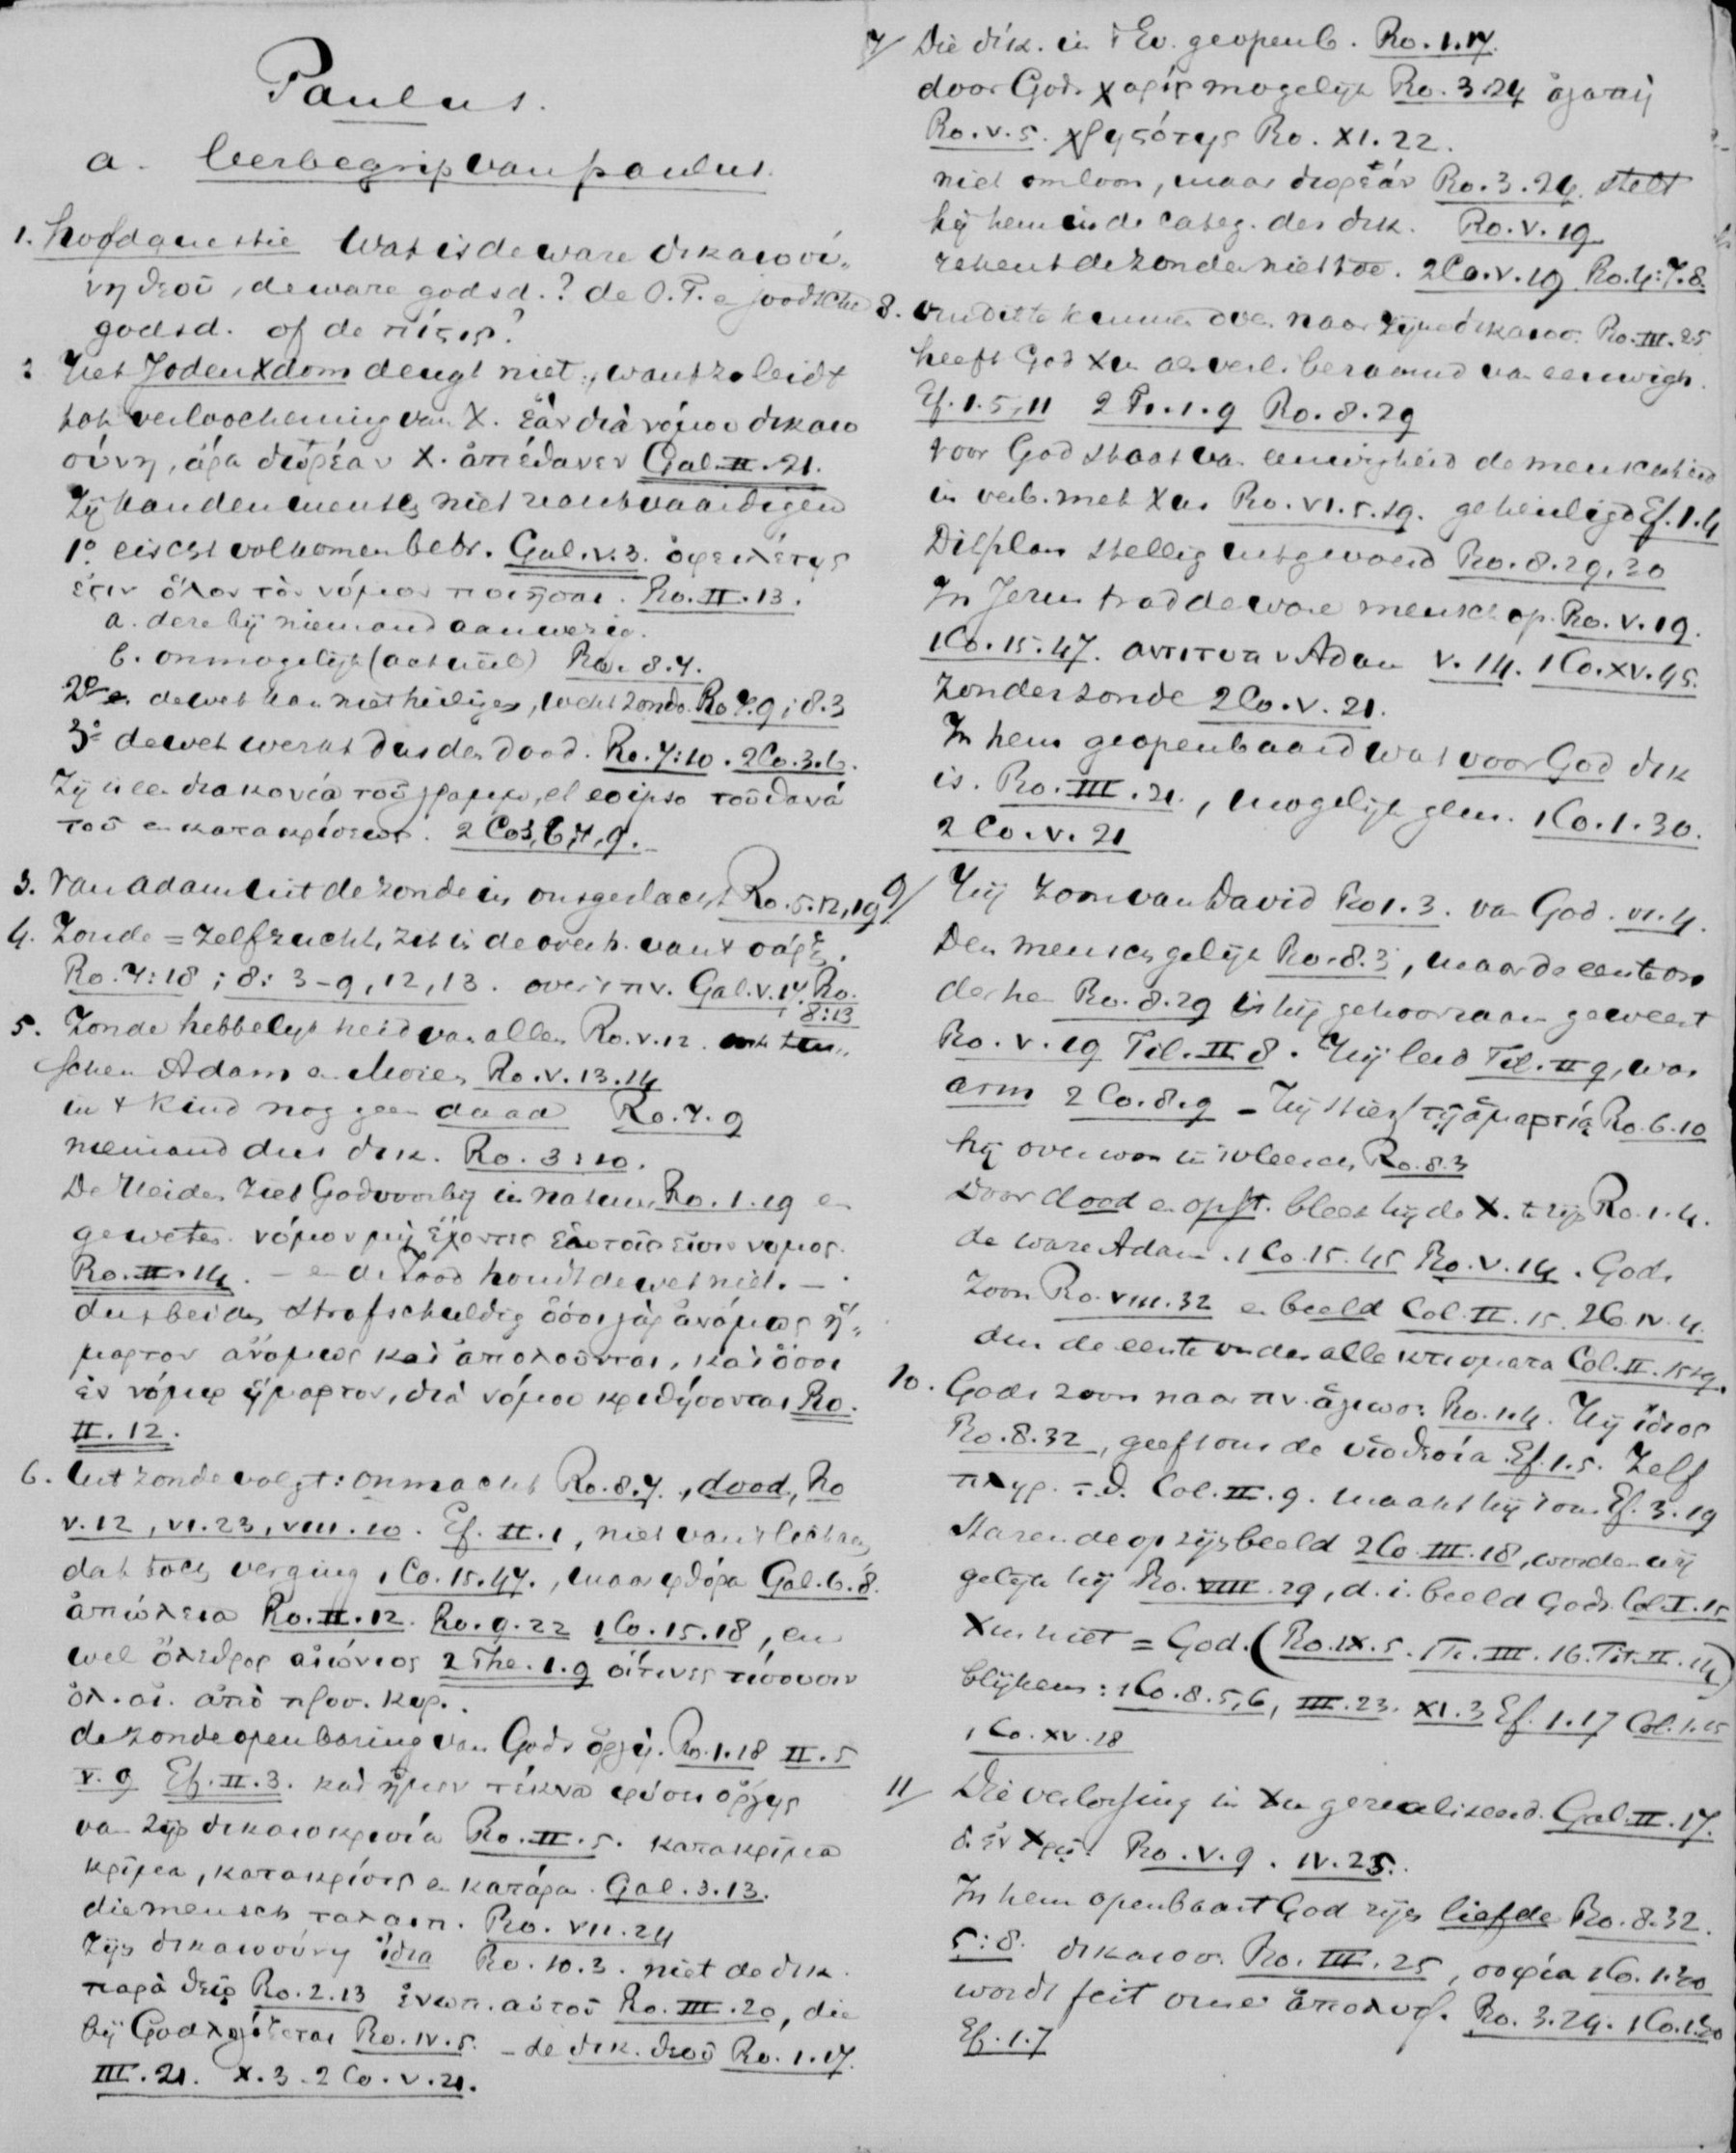 Paulus.
a. leerbegrip van paulus.
1. hoofdquestie Wat is de ware δικαιοσύ„
νη θεοῦ, de ware godsd.? de O.T. e joodsche
godsd. of de πίςις?
2 Het JodenXdom deugt niet, want ze leidt
tot verloochening van X. ἐὰν διὰ νόμου δικαιο
σύνη, ἄρα δωρέαν X. ἀπέθανεν Gal. II. 21.
Zij kan den mensch niet rechtvaardigen
1o. eischt volkomen betr. Gal. v. 3. ὀφειλέτης
ἐςιν ὅλον τὸν νόμον ποιῆσαι. Ro. II. 13.
a. dere bij niemand aanwezig.
b. onmogelijk (actueel) Ro. 8.7.
2o de wet kan niet heiligen, wekt zonde Ro 7.9; 8.3
3o de wet werkt dus den dood. Ro. 7:10. 2 Co. 3.6.
Zij is een διακονία τοῦ γραμμ., et eo ipso τοῦ θανά
τοῦ en κατακρίσεως. 2 Co 3, 6, 7, 9.
3. Van Adam uit de zonde in ons geslacht Ro. 5.12, 19
4. Zonde = zelfzucht, zet in de overh. van 't σάρξ.
Ro. 7:18; 8: 3-9, 12, 13. over 't πν. Gal. v. 17. Ro.
8:13
5. Zonde hebbelijkheid van allen Ro. v. 12.
schen Adam en Mozes Ro. v. 13. 14
in 't kind nog geen daad Ro. 7. 9
niemand dus δικ. Ro. 3:10.
De Heiden ziet God voorbij in natuur Ro. 1. 19 e
geweten. νόμον μὴ ἔχοντες ἑαυτοῖς εἰσιν νομος.
Ro. II. 14. — en de Jood houdt de wet niet. —
dus beiden strafschuldig ὅσοι γὰρ ἀνόμως ἥ„
μαρτον ἀνόμως καὶ ἀπολοῦνται, καὶ ὅσοι
ἐν νόμῳ ἥμαρτον, διὰ νόμου κριθήσονται Ro.
II. 12.
6. Uit zonde volgt: onmacht Ro. 8.7., dood, Ro
v. 12, vi. 23, viii. 10. Ef. II. 1, niet van 't lichaam
dat toch verging 1 Co. 15. 47., maar φθόρα Gal. 6. 8.
ἀπώλεια Ro. II. 12. Ro. 9. 22 1 Co. 15. 18, en
wel ὄλεθρος αἰώνιος 2 The. 1. 9 οἵτινες τίσουσιν
ὀλ. αἰ. ἀπὸ προσ. Κυρ.
de zonde openbaring van Gods ὀργή. Ro. 1. 18 II. 5
v. 9 Ef. II. 3. καὶ ἤμεν τέκνα φύσει ὀργῆς
van zijn δικαιοκρισία Ro. II. 5. κατακρῖμα
κρῖμα, κατακρίσις en κατάρα. Gal. 3. 13.
die mensch ταλαιπ. Ro. vii. 24
Zijn δικαιοσύνη ἰδία Ro. 10. 3. niet de δικ.
παρὰ θεῷ Ro. 2. 13 ἐνωπ. αὐτοῦ Ro. III. 20, die
bij God λογίζεται Ro. iv. 5. – de δικ. θεοῦ Ro. 1. 17.
III. 21. x. 3. 2 Co. v. 21.
7/ Die δίκ. in 't Ev. geopenb. Ro. 1. 17.
door Gods χαρίς mogelijk Ro. 3. 24 ἀγαπή
Ro. v. 5. χρηςότης Ro. XI. 22.
niet om loon, maar δωρεάν Ro. 3. 24. stelt
hij hem in de categ. der δικ. Ro. v. 19
rekent de zonde niet toe. 2 Co. v. 19 Ro. 4: 7. 8.
8. om dit te kunnen doen naar zijne δικαιοσ. Ro. III. 25
heeft God Xu als verl. beraamd van eeuwigh.
Ef. 1. 5, 11 2 Ti. 1. 9 Ro. 8. 29
voor God staat van eeuwigheid de menschheid
in verb. met Xus Ro. vi. 5. 19. geheiligd Ef. 1. 4
Dit plan stellig uitgevoerd Ro. 8. 29, 30
In Jezus trad de ware mensch op. Ro. v. 19.
1 Co. 15. 47. αντιτυπ v Adam v. 14. 1 Co. xv. 45.
zonder zonde 2 Co. v. 21.
In hem geopenbaard wat voor God δικ
is. Ro. III. 21., mogelijk glm. 1 Co. 1. 30.
2 Co. v. 21
9/ Hij zoon van David Ro 1. 3. van God. vs. 4.
Den mensch gelijk Ro. 8. 3, maar de eerste on
der hen Ro. 8. 29 is hij gehoorzaam geweest
Ro. v. 19 Fil. II 8. Hij leed Fil. II 9, was
arm 2 Co. 8. 9 – Hij stierf τῇ ἁμαρτίᾳ Ro. 6. 10
hij overwon in 't vleesch Ro. 8. 3
Door dood en opst. bleek hij de X. te zijn Ro. 1. 4.
de ware Adam. 1 Co. 15. 45 Ro. v. 14. Gods
Zoon Ro. viii. 32 en beeld Col. II. 15. 2 Co. iv. 4.
dus de eerste onder alle κτισματα Col. II. 15, 19.
10. Gods zoon naar πν. ἁγιωσ. Ro. 1. 4. Hij ἴδιος
Ro. 8. 32, geeft ons de υἱοθεσία Ef. 1. 5. Zelf
πληρ. τ. θ. Col. II. 9. maakt hij 't ons Ef. 3. 19
Starende op zijn beeld 2 Co. III. 18, worden wij
gelijk hij Ro. VIII. 29, d. i. beeld Gods Col. I. 15
Xus niet = God. (Ro. ix. 5. 1 Ti. III. 16. Tit. II. 14)
blijkens: 1 Co. 8. 5, 6, III. 23. XI. 3 Ef. 1. 17 Col. 1. 15
1 Co. xv. 28
11/ Die verlossing in Xu gerealiseerd. Gal. II. 17.
δ. ἐν Χρῳ. Ro. v. 9. iv. 25.
In hem openbaart God zijn liefde Ro. 8. 32.
5:8. δικαιοσ. Ro. III. 25, σοφία 1 Co. 1. 30
wordt feit onze ἀπολυτρ. Ro. 3. 24. 1 Co. 1. 30
Ef. 1. 7